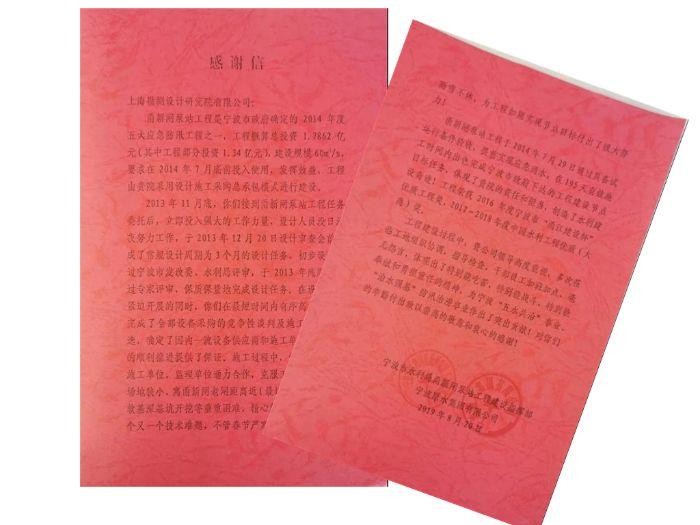 感谢信
上海勘测设计研究院有限公司:
甬新闸泵站工程是宁波市政府确定的 2014 年度
五大应急防汛工程之一,工程概算总投资 1.9862 亿
元(其中工程部分投资 1.34 亿元),建设规模 60m³/s,
要求在 2014 年 7 月底前投入使用,发挥效益。工程
由贵院采用设计施工采购总承包模式进行建设。
2013 年 11 月底,你们接到甬新闸泵站工程任务
委托后,立即投入强大的工作力量,设计人员没日
次努力工作,于 2013 年 12 月 20 日设计
成了常规设计周期为 3 个月的设计任务。初步设
过宁波市发改委、水利局评审,于 2013 年
过专家评审、保质保量地完成设计任务。在
紧迫开展的同时,你们在最短时间内有序
完成了全部设备采购的竞争性谈判及施工
选,确定了国内一流设备供应商和施工单
的顺利推进提供了保证。施工过程中,
施工单位、监理单位通力合作,克服
场地狭小、离甬新闸老闸距离近(最
软基深基坑开挖等重重困难,
个又一个技术难题,不管春节严寒
雨雪不休,为工程如期实现节点目标付出了极大努
力!
甬新闸泵站工程于 2014 年 7 月 29 日通过具备试
运行条件验收,提前实现应急通水,在 195 天有效施
工时间内出色完成宁波市政府下达的工程建设节点
目标任务,体现了贵院的责任和担当,创造了水利建
设奇迹!工程荣获 2016 年度宁波市“甬江建设杯”
优质工程奖、2017-2018 年度中国水利工程优质(大
禹)奖。
工程建设过程中,贵公司领导高度重视,多次在
施工现场组织协调、指导检查,干部员工加班加点、毫
无怨言,体现出了特别能吃苦、特别能战斗、特别能
奉献和勇担重任的精神,为宁波“五水共治”事业、
“治水强基”防汛治涝事业作出了突出贡献!对你们
的辛勤付出致以崇高的敬意和衷心的感谢!
宁波市水利局甬新闸泵站工程建设指挥部
宁波原水集团有限公司
2019 年 8 月 20 日